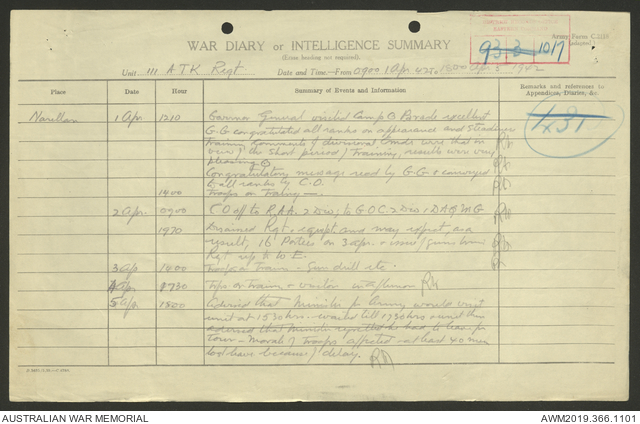 Army Form C.2118
93.2 1017
WAR DIARY or INTELLIGENCE SUMMARY
(Erase heading not required).
Unit 111 A TK Regt Date and Time—From 0900 1 Apr 42 to 1800 Apr 5 1942
Place Date Hour Summary of Events and Information Remarks and references to
Appendices, Diaries, &c.
Narellan 1 Apr 1210 Governor General visited Camp Parade excellent
G.G congratulated all ranks on appearance and steadiness
Training Comments of divisional Comdr were that in
view of the short period of Training, results were very
pleasing
Congratulatory message read by G-G conveyed
to all ranks by C.O.
1400 Troops on Training
2 Apr. 0900 CO off to R.A.A. 2 Div, to G O C 2 Div
Regt equipt and
result, 16 on 3 Apr
Regt up to E.
3 Ap 1800 Troops on Train - Gun drill etc.
4 Ap 1730 Tps on Train visitor in afternoon
5 Ap. 1500 Advised that Minister for Army would visit
unit at 1530 hrs - waited till 1730 hrs
advised that Minister regretted he had to leave for
Tour - Morale of Troops affected - at least 40 men
lost leave because of delay.
431
AUSTRALIAN WAR MEMORIAL AWM2019.366.1101